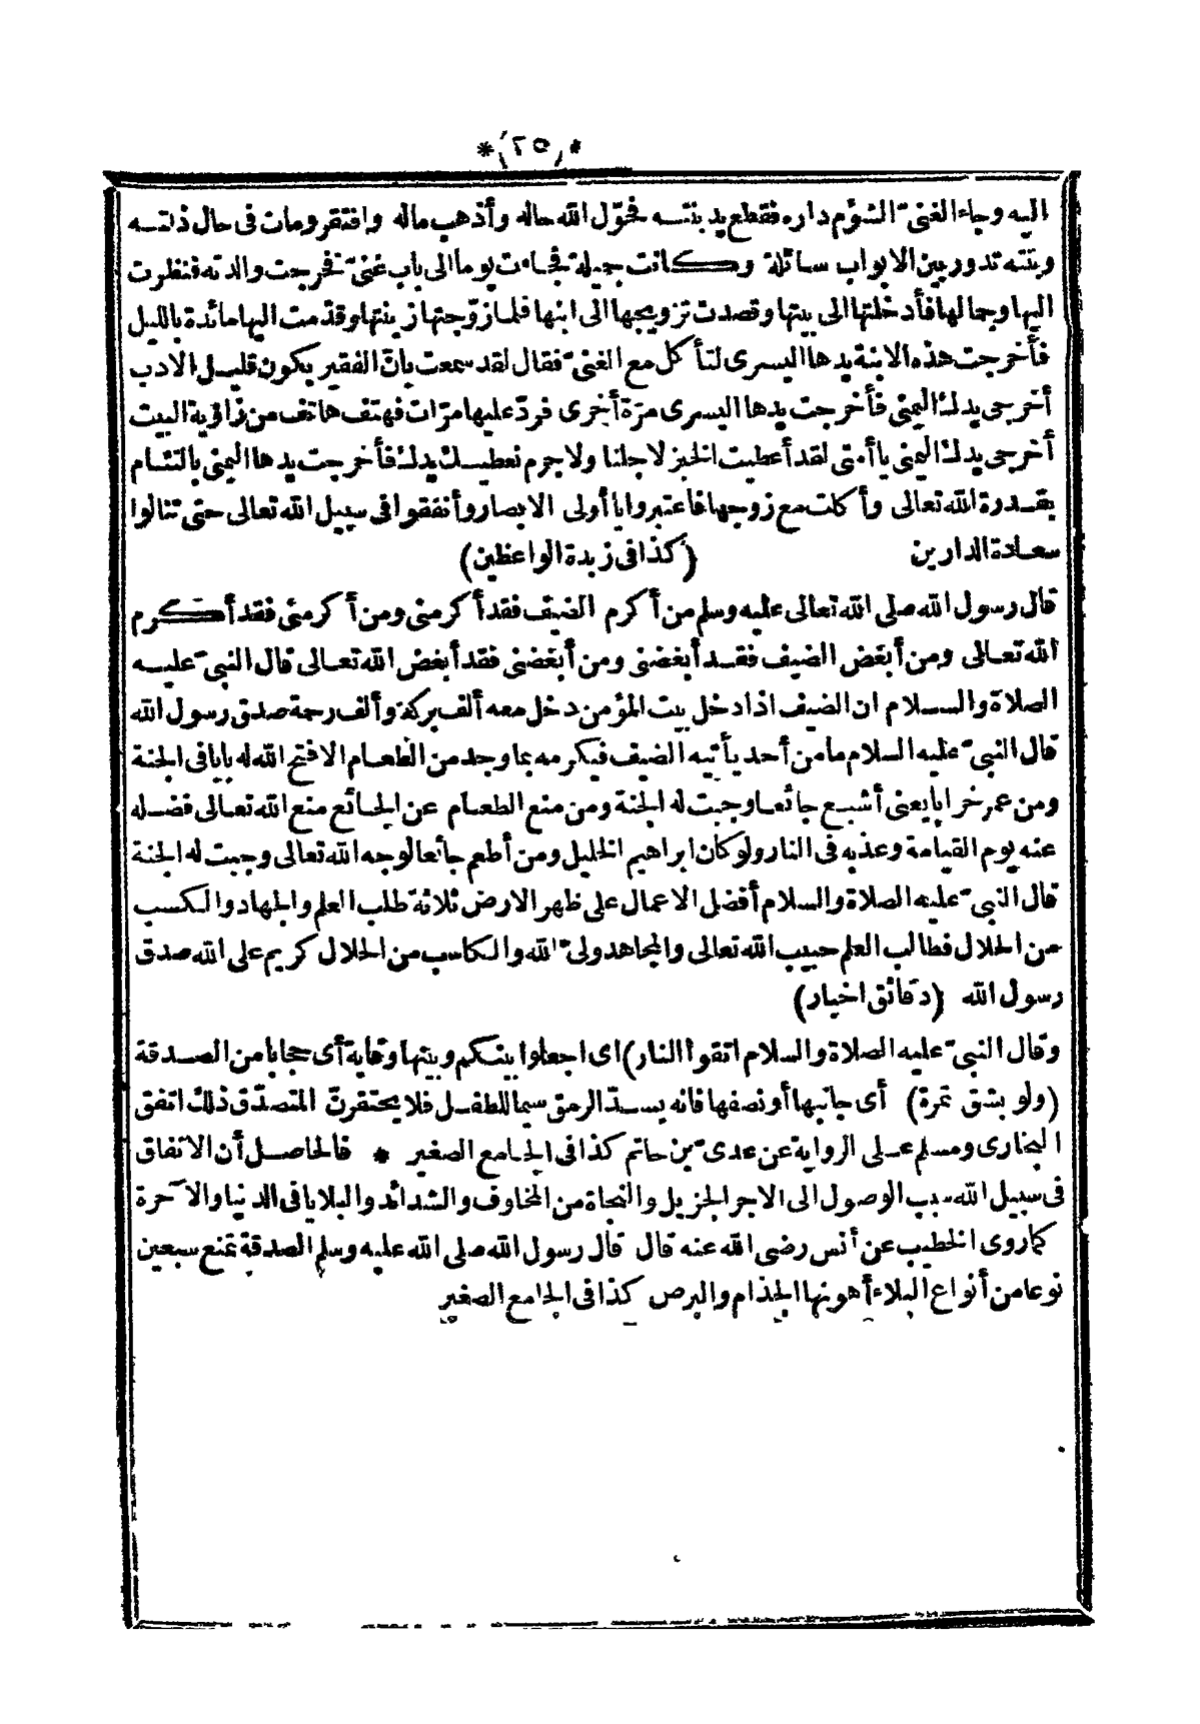 *(٢٥)*
اليه وجاء الغنىّ الشؤم داره فقطع يد بنته فحوّل الله حاله وأذهب ماله وافتقر ومات فى حال ذلته
وبنته تدور بين الابواب سائلة وكانت جميلة فجاءت يوما الى باب غنىّ فخرجت والدته فنظرت
اليها وجمالها فأدخلتها الى بيتها وقصدت تزويجها الى ابنها فلما زوّجتها زينتها وقدّمت اليها مائدة بالليل
فأخرجت هذه الابنة يدها اليسرى لتأكل مع الغنىّ فقال لقد سمعت بانّ الفقير يكون قليل الادب
أخرجى يدك اليمنى فأخرجت يدها اليسرى مرّة أخرى فردّ عليها مرّات فهتف هاتف من زاوية البيت
أخرجى يدك اليمنى يا أمتى لقد أعطيت الخبز لاجلنا ولا جرم نعطيك يدك فأخرجت يدها اليمنى بالتمام
بقدرة الله تعالى وأكلت مع زوجها فاعتبروا يا أولى الابصار وأنفقوا فى سبيل الله تعالى حتى تنالوا
سعادة الدارين (كذا فى زبدة الواعظين)
قال رسول الله صلى الله تعالى عليه وسلم من أكرم الضيف فقد أكرمنى ومن أكرمنى فقد أكرم
الله تعالى ومن أبغض الضيف فقد أبغضنى ومن أبغضنى فقد أبغض الله تعالى قال النبىّ عليه
الصلاة والسلام ان الضيف اذا دخل بيت المؤمن دخل معه ألف بركة وألف رحمة صدق رسول الله
قال النبىّ عليه السلام ما من أحد يأتيه الضيف فيكرمه بما وجد من الطعام الا فتح الله له بابا فى الجنة
ومن عمر خرابا يعنى أشبع جائعا وجبت له الجنة ومن منع الطعام عن الجائع منع الله تعالى فضله
عنه يوم القيامة وعذبه فى النار ولو كان ابراهيم الخليل ومن أطعم جائعا لوجه الله تعالى وجبت له الجنة
قال النبىّ عليه الصلاة والسلام أفضل الاعمال على ظهر الارض ثلاثة طلب العلم والجهاد والكسب
من الحلال فطالب العلم حبيب الله تعالى والمجاهد ولىّ الله والكاسب من الحلال كريم على الله صدق
رسول الله (دقائق اخبار)
وقال النبىّ عليه الصلاة والسلام اتقوا النار) اى اجعلوا بينكم وبينها وقاية أى حجابا من الصدقة
(ولو بشق تمرة) أى جانبها أو نصفها فانه يسدّ الرمق سيما للطفل فلا يحتقرنّ المتصدّق ذلك اتفق
البخارى ومسلم على الرواية عن عدىّ بن حاتم كذا فى الجامع الصغير * فالحاصل أن الانفاق
فى سبيل الله سبب الوصول الى الاجر الجزيل والنجاة من المخاوف والشدائد والبلايا فى الدنيا والآخرة
كما روى الخطيب عن أنس رضى الله عنه قال قال رسول الله صلى الله عليه وسلم الصدقة تمنع سبعين
نوعا من أنواع البلاء أهونها الجذام والبرص كذا فى الجامع الصغير